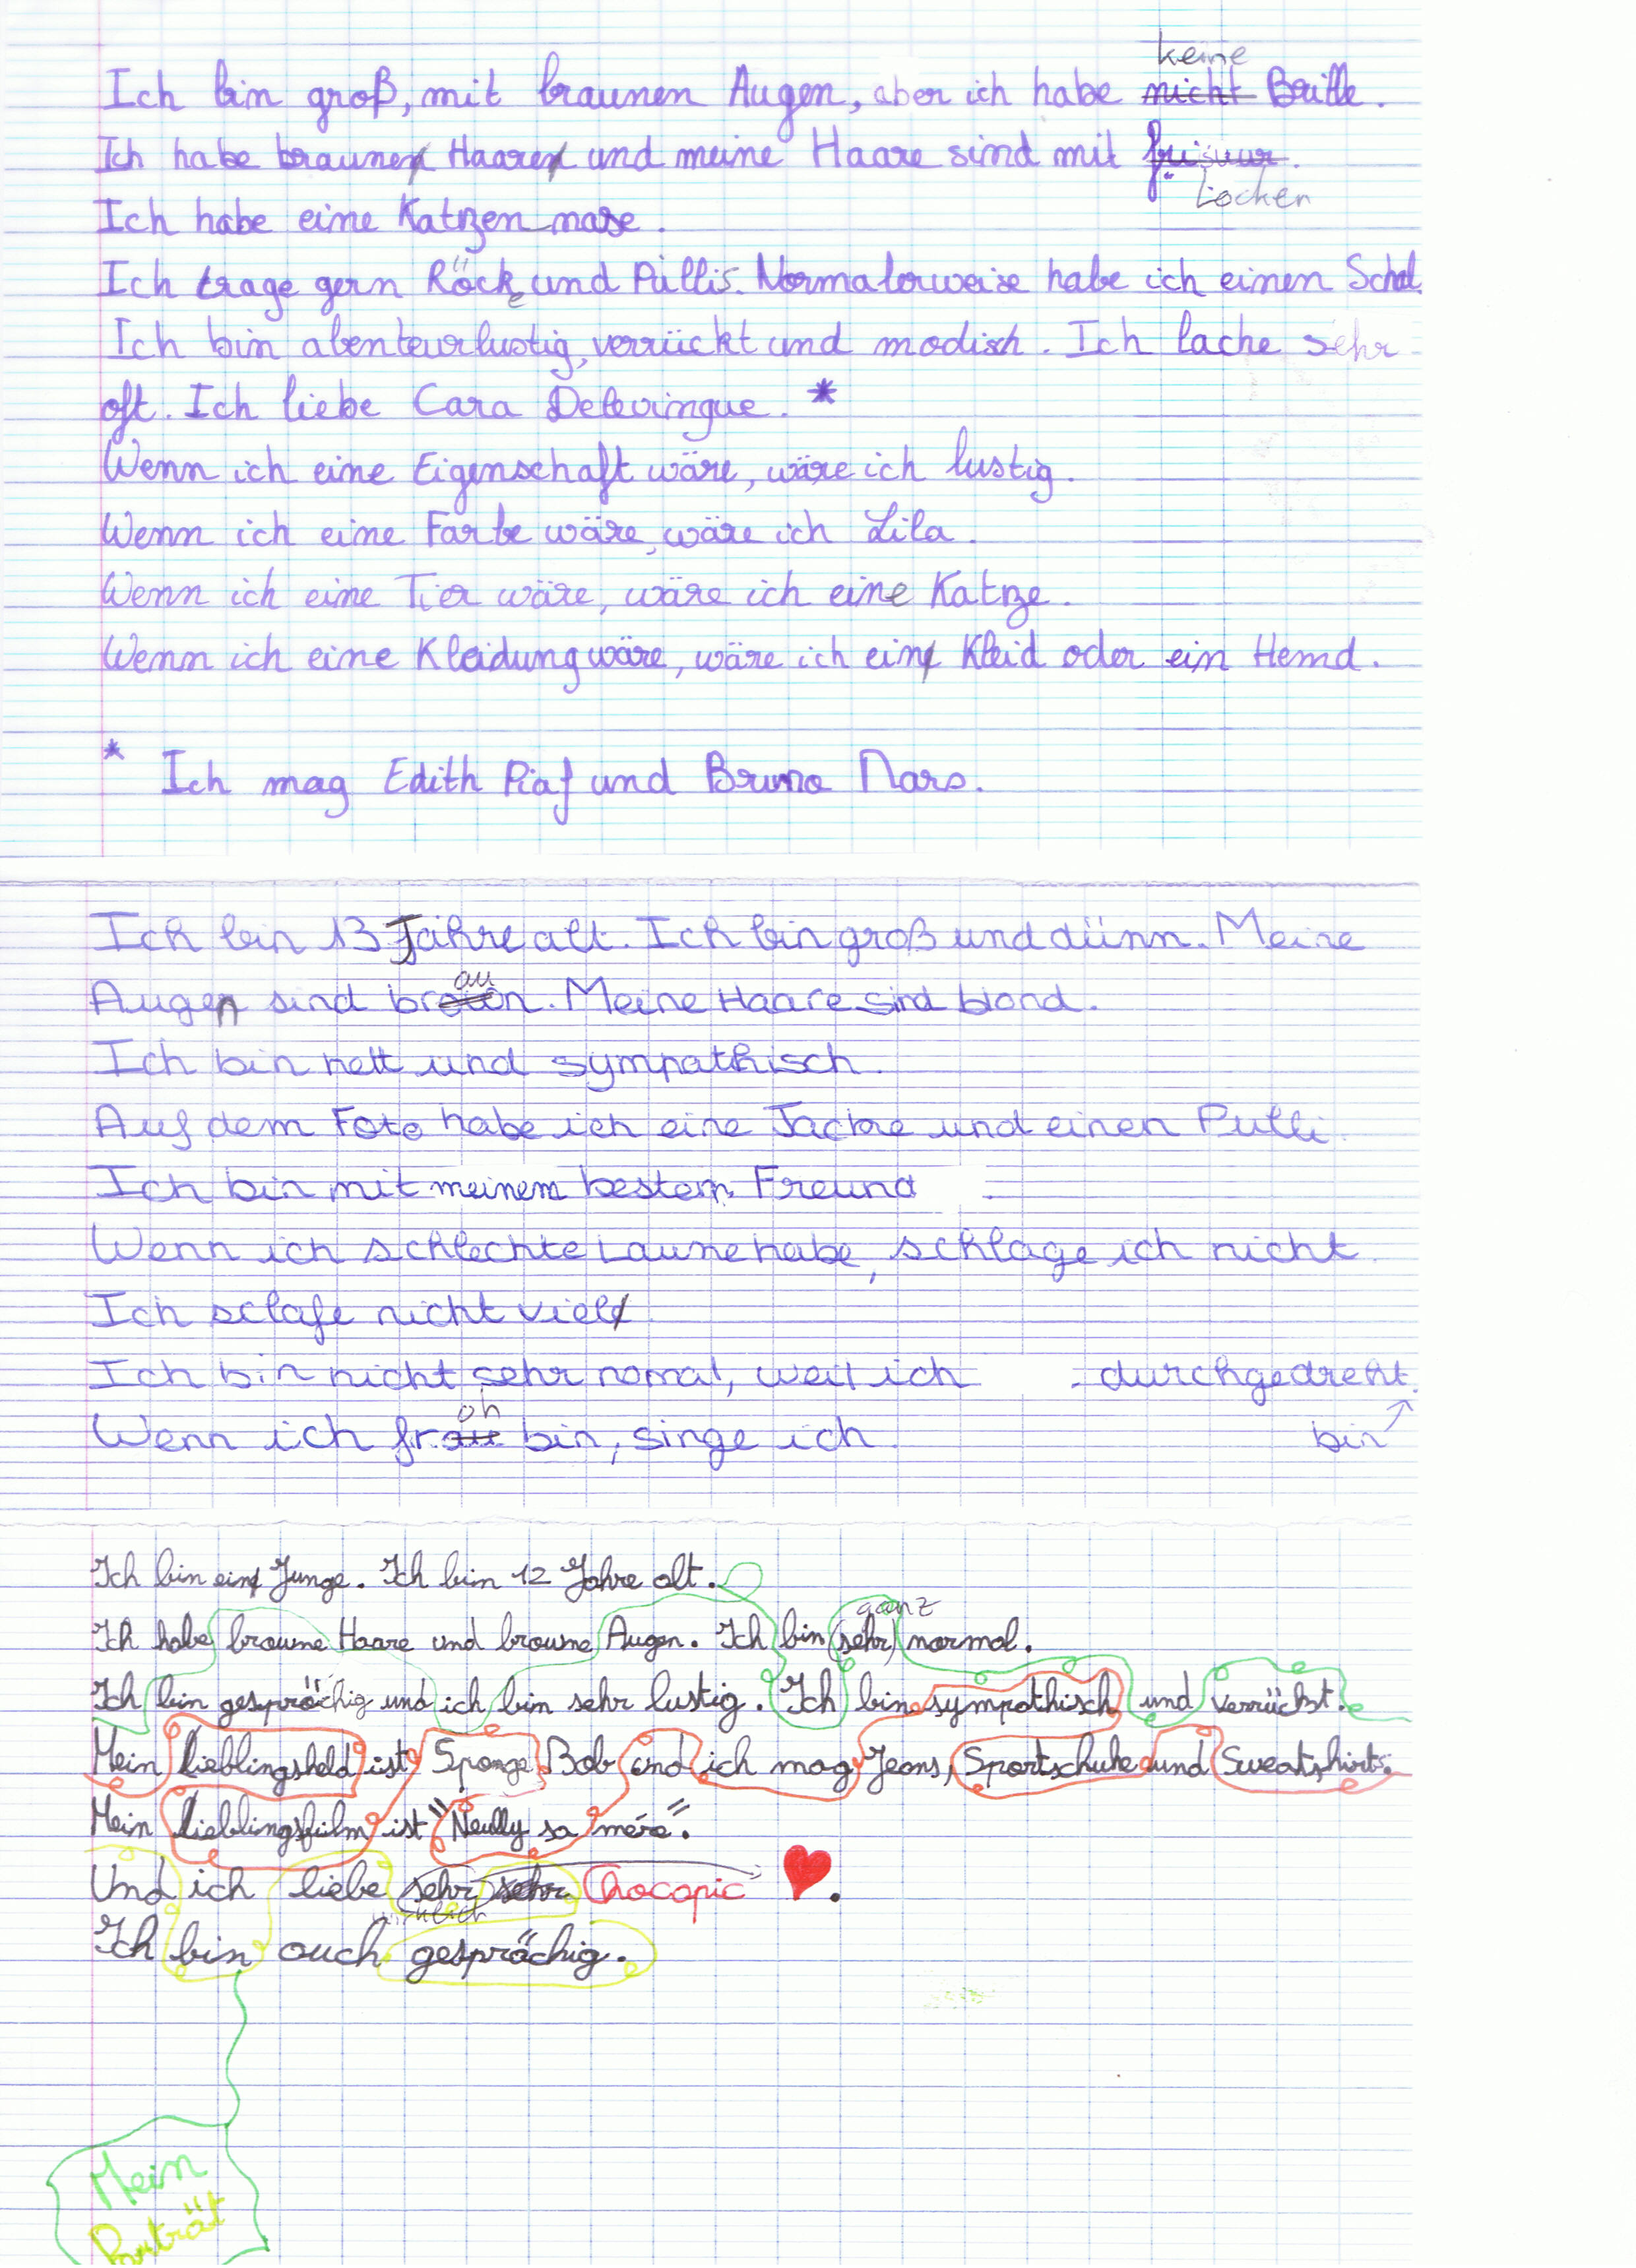 keine
Ich bin groß, mit braunen Augen, aber ich habe nicht Brille.
Ich habe braunen Haaren und meine Haare sind mit frisuur.
Locken
Ich habe eine Katzen nase.
Ich trage gern Röcke und Pullis. Normalerweise habe ich einen Schal.
Ich bin abenteurlustig, verrückt und modisch. Ich lache sehr
oft. Ich liebe Cara Delevingue. *
Wenn ich eine Eigenschaft wäre, wäre ich lustig.
Wenn ich eine Farbe wäre, wäre ich Lila.
Wenn ich eine Tier wäre, wäre ich eine Katze.
Wenn ich eine Kleidung wäre, wäre ich ein Kleid oder ein Hemd.
* Ich mag Edith Piaf und Bruno Mars.
Ich bin 13 Jahre alt. Ich bin groß und dünn. Meine
au
Augen sind braun. Meine Haare sind blond.
Ich bin nett und sympathisch.
Auf dem Foto habe ich eine Jacke und einen Pulli.
Ich bin mit meinem bestem Freund
Wenn ich schlechte Laune habe, schlage ich nicht.
Ich sclafe nicht viel
Ich bin nicht sehr nomal, weil ich durchgedreht.
oh
Wenn ich frau bin, singe ich. bin
Ich bin ein Junge. Ich bin 12 Jahre alt.
ganz
Ich habe braune Haare und braune Augen. Ich bin (sehr) normal.
Ich bin gesprächig und ich bin sehr lustig. Ich bin sympathisch und verrückt.
Mein Lieblingsheld ist Sponge Bob und ich mag Jeans, Sportschuhe und Sweatshirts.
Mein Lieblingsfilm ist "Neully sa mère".
Und ich liebe sehr sehr Chocapic ♥.
Ich bin auch gesprächig.
Mein
Porträt